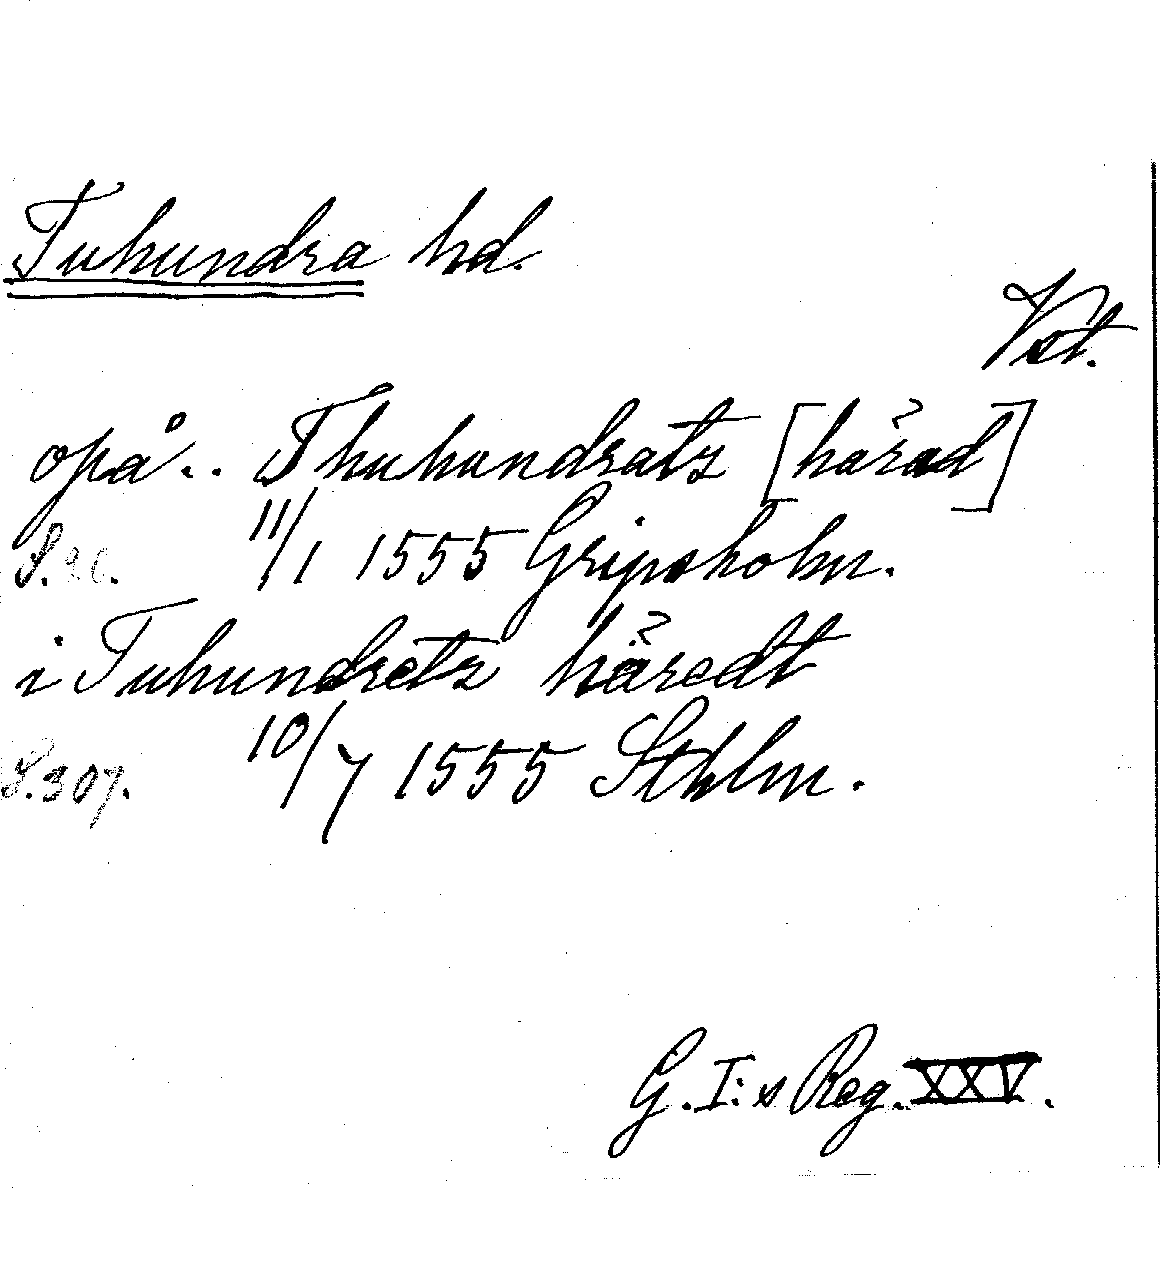 Tuhundra hd.
Vst.
opå.. Thuhundratz [härad]
S. 11/1 1555 Gripsholm.
i Tuhundretz häredt
S.307. 10/7 1555 Sthlm.
G.I:s Reg. XXV.